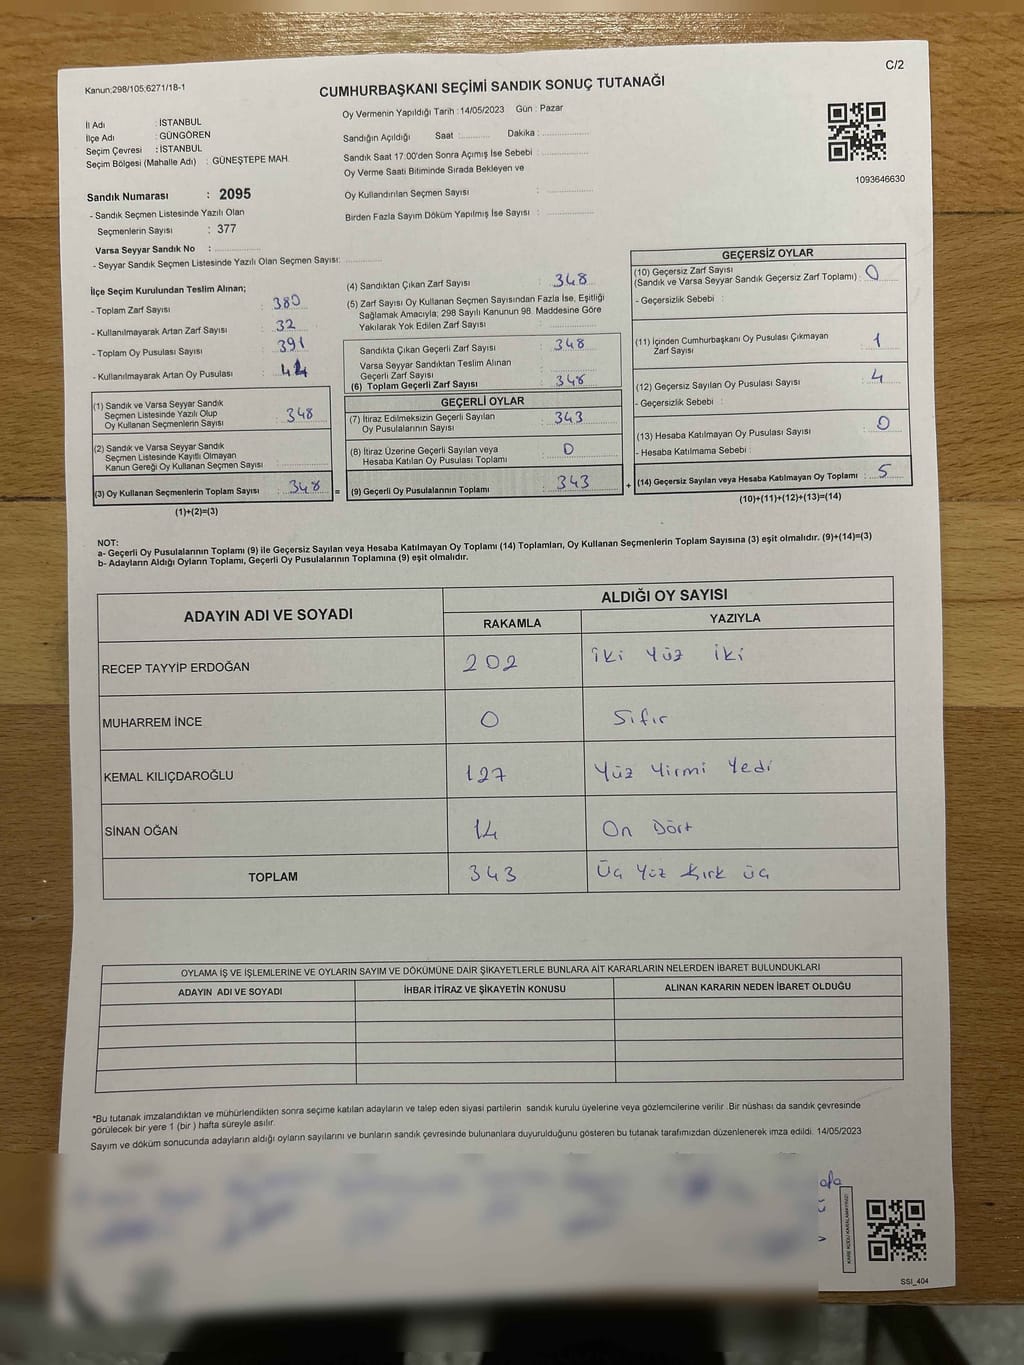 C/2
Kanun:298/105;6271/18-1
CUMHURBAŞKANI SEÇİMİ SANDIK SONUÇ TUTANAĞI
Oy Vermenin Yapıldığı Tarih : 14/05/2023 Gün : Pazar
İl Adı : İSTANBUL
İlçe Adı : GÜNGÖREN
Seçim Çevresi : İSTANBUL
Seçim Bölgesi (Mahalle Adı) : GÜNEŞTEPE MAH.
Sandığın Açıldığı Saat : Dakika :
Sandık Saat 17:00'den Sonra Açımış İse Sebebi :
Oy Verme Saati Bitiminde Sırada Bekleyen ve
Oy Kullandırılan Seçmen Sayısı :
Birden Fazla Sayım Döküm Yapılmış İse Sayısı :
1093646630
Sandık Numarası : 2095
- Sandık Seçmen Listesinde Yazılı Olan
Seçmenlerin Sayısı : 377
Varsa Seyyar Sandık No :
- Seyyar Sandık Seçmen Listesinde Yazılı Olan Seçmen Sayısı:
İlçe Seçim Kurulundan Teslim Alınan;
- Toplam Zarf Sayısı : 380
- Kullanılmayarak Artan Zarf Sayısı : 32
- Toplam Oy Pusulası Sayısı : 391
- Kullanılmayarak Artan Oy Pusulası :
(1) Sandık ve Varsa Seyyar Sandık
Seçmen Listesinde Yazılı Olup
Oy Kullanan Seçmenlerin Sayısı : 348
(2) Sandık ve Varsa Seyyar Sandık
Seçmen Listesinde Kayıtlı Olmayan
Kanun Gereği Oy Kullanan Seçmen Sayısı :
(3) Oy Kullanan Seçmenlerin Toplam Sayısı : 348 =
(1)+(2)=(3)
(4) Sandıktan Çıkan Zarf Sayısı : 348
(5) Zarf Sayısı Oy Kullanan Seçmen Sayısından Fazla İse, Eşitliği
Sağlamak Amacıyla; 298 Sayılı Kanunun 98. Maddesine Göre
Yakılarak Yok Edilen Zarf Sayısı :
Sandıkta Çıkan Geçerli Zarf Sayısı : 348
Varsa Seyyar Sandıktan Teslim Alınan
Geçerli Zarf Sayısı :
(6) Toplam Geçerli Zarf Sayısı : 348
GEÇERLİ OYLAR
(7) İtiraz Edilmeksizin Geçerli Sayılan
Oy Pusulalarının Sayısı : 343
(8) İtiraz Üzerine Geçerli Sayılan veya
Hesaba Katılan Oy Pusulası Toplamı : 0
(9) Geçerli Oy Pusulalarının Toplamı : 343 +
GEÇERSİZ OYLAR
(10) Geçersiz Zarf Sayısı
(Sandık ve Varsa Seyyar Sandık Geçersiz Zarf Toplamı) : 0
- Geçersizlik Sebebi :
(11) İçinden Cumhurbaşkanı Oy Pusulası Çıkmayan
Zarf Sayısı : 1
(12) Geçersiz Sayılan Oy Pusulası Sayısı : 4
- Geçersizlik Sebebi :
(13) Hesaba Katılmayan Oy Pusulası Sayısı : 0
- Hesaba Katılmama Sebebi :
(14) Geçersiz Sayılan veya Hesaba Katılmayan Oy Toplamı : 5
(10)+(11)+(12)+(13)=(14)
NOT:
a- Geçerli Oy Pusulalarının Toplamı (9) ile Geçersiz Sayılan veya Hesaba Katılmayan Oy Toplamı (14) Toplamları, Oy Kullanan Seçmenlerin Toplam Sayısına (3) eşit olmalıdır. (9)+(14)=(3)
b- Adayların Aldığı Oyların Toplamı, Geçerli Oy Pusulalarının Toplamına (9) eşit olmalıdır.
ADAYIN ADI VE SOYADI
ALDIĞI OY SAYISI
RAKAMLA YAZIYLA
RECEP TAYYİP ERDOĞAN 202 iki Yüz iki
MUHARREM İNCE 0 Sıfır
KEMAL KILIÇDAROĞLU 127 Yüz Yirmi Yedi
SİNAN OĞAN 14 On Dört
TOPLAM 343 Üç Yüz Kırk üç
OYLAMA İŞ VE İŞLEMLERİNE VE OYLARIN SAYIM VE DÖKÜMÜNE DAİR ŞİKAYETLERLE BUNLARA AİT KARARLARIN NELERDEN İBARET BULUNDUKLARI
ADAYIN ADI VE SOYADI İHBAR İTİRAZ VE ŞİKAYETİN KONUSU ALINAN KARARIN NEDEN İBARET OLDUĞU
*Bu tutanak imzalandıktan ve mühürlendikten sonra seçime katılan adayların ve talep eden siyasi partilerin sandık kurulu üyelerine veya gözlemcilerine verilir .Bir nüshası da sandık çevresinde
görülecek bir yere 1 (bir ) hafta süreyle asılır.
Sayım ve döküm sonucunda adayların aldığı oyların sayılarını ve bunların sandık çevresinde bulunanlara duyurulduğunu gösteren bu tutanak tarafımızdan düzenlenerek imza edildi. 14/05/2023
KARE KODU KARALAMAYINIZ!
SSI_404